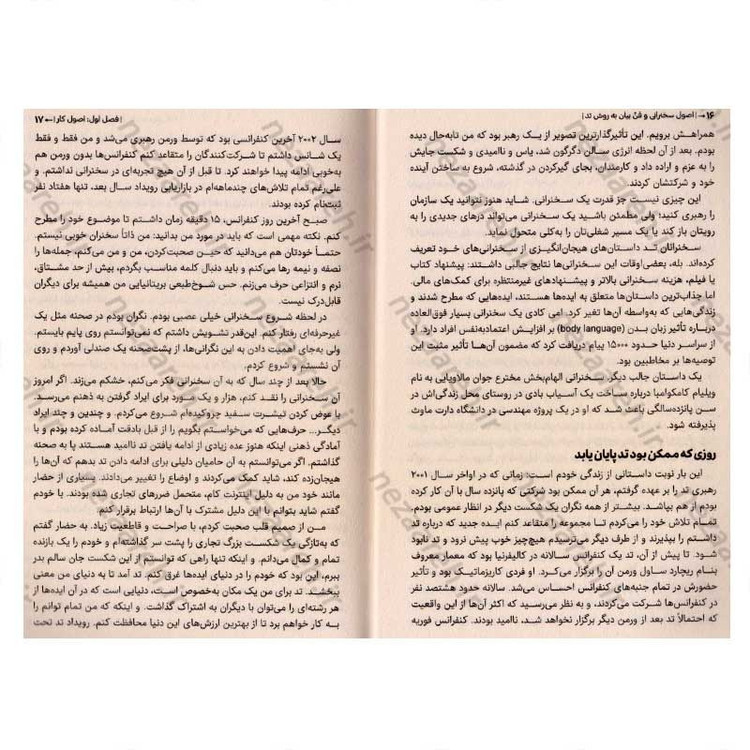 ۱۶ ← | اصول سخنرانی و فنّ بیان به روش تد |
همراهش برویم. این تأثیرگذارترین تصویر از یک رهبر بود که من تابه‌حال دیده
بودم. بعد از آن لحظه انرژی سالن دگرگون شد، یاس و ناامیدی و شکست جایش
را به عزم و اراده داد و کارمندان، بجای گیرکردن در گذشته، شروع به ساختن آینده
خود و شرکتشان کردند.
این چیزی نیست جز قدرت یک سخنرانی. شاید هنوز نتوانید یک سازمان
را رهبری کنید؛ ولی مطمئن باشید یک سخنرانی می‌تواند درهای جدیدی را به
رویتان باز کند یا یک مسیر شغلی‌تان را به‌کلی متحول نماید.
سخنرانان تد داستان‌های هیجان‌انگیزی از سخنرانی‌های خود تعریف
کرده‌اند. بله، بعضی‌اوقات این سخنرانی‌ها نتایج جالبی داشتند: پیشنهاد کتاب
یا فیلم، هزینه سخنرانی بالاتر و پیشنهادهای غیرمنتظره برای کمک‌های مالی.
اما جذاب‌ترین داستان‌ها متعلق به ایده‌ها هستند، ایده‌هایی که مطرح شدند و
زندگی‌هایی که به‌واسطه آن‌ها تغیر کرد. امی کادی یک سخنرانی بسیار فوق‌العاده
درباره تأثیر زبان بدن (body language) بر افزایش اعتمادبه‌نفس افراد دارد. او
از سراسر دنیا حدود ۱۵۰۰۰ پیام دریافت کرد که مضمون آن‌ها تأثیر مثبت این
توصیه‌ها بر مخاطبین بود.
یک داستان جالب دیگر، سخنرانی الهام‌بخش مخترع جوان مالاویایی به نام
ویلیام کامکوامبا درباره ساخت یک آسیاب بادی در روستای محل زندگی‌اش در
سن پانزده‌سالگی باعث شد که او در یک پروژه مهندسی در دانشگاه دارت ماوث
پذیرفته شود.
روزی که ممکن بود تد پایان یابد
این بار نوبت داستانی از زندگی خودم است: زمانی که در اواخر سال ۲۰۰۱
رهبری تد را بر عهده گرفتم، هر آن ممکن بود شرکتی که پانزده سال با آن کار کرده
بودم از هم بپاشد. بیشتر از همه نگران یک شکست دیگر در انظار عمومی بودم.
تمام تلاش خود را می‌کردم تا مجموعه را متقاعد کنم ایده جدید که درباره تد
داشتم را بپذیرند و از طرف دیگر می‌ترسیدم هیچ‌چیز خوب پیش نرود و تد نابود
شود. تا پیش از آن، تد یک کنفرانس سالانه در کالیفرنیا بود که معمار معروف
بنام ریچارد ساول ورمن آن را برگزار می‌کرد. او فردی کاریزماتیک بود و تأثیر
حضورش در تمام جنبه‌های کنفرانس احساس می‌شد. سالانه حدود هشتصد نفر
در کنفرانس‌ها شرکت می‌کردند، و به نظر می‌رسید که اکثر آن‌ها از این واقعیت
که احتمالاً تد بعد از ورمن دیگر برگزار نخواهد شد، ناامید بودند. کنفرانس فوریه
| فصل اول: اصول کار | ← ۱۷
سال ۲۰۰۲ آخرین کنفرانسی بود که توسط ورمن رهبری می‌شد و من فقط و فقط
یک شانس داشتم تا شرکت‌کنندگان را متقاعد کنم کنفرانس‌ها بدون ورمن هم
به‌خوبی ادامه پیدا خواهند کرد. تا قبل از آن هیچ تجربه‌ای در سخنرانی نداشتم. و
علی‌رغم تمام تلاش‌های چندماهه‌ام در بازاریابی رویداد سال بعد، تنها هفتاد نفر
ثبت‌نام کرده بودند.
صبح آخرین روز کنفرانس، ۱۵ دقیقه زمان داشتم تا موضوع خود را مطرح
کنم. نکته مهمی است که باید در مورد من بدانید: من ذاتاً سخنران خوبی نیستم.
حتماً خودتان هم می‌دانید که حین صحبت‌کردن، من و من می‌کنم، جمله‌ها را
نصفه و نیمه رها می‌کنم و باید دنبال کلمه مناسب بگردم، بیش از حد مشتاق،
نرم و انتزاعی حرف می‌زنم. حس شوخ‌طبعی بریتانیایی من همیشه برای دیگران
قابل‌درک نیست.
در لحظه شروع سخنرانی خیلی عصبی بودم. نگران بودم در صحنه مثل یک
غیرحرفه‌ای رفتار کنم. این‌قدر تشویش داشتم که نمی‌توانستم روی پایم بایستم.
ولی به‌جای اهمیت دادن به این نگرانی‌ها، از پشت‌صحنه یک صندلی آوردم و روی
آن نشستم و شروع کردم.
حالا بعد از چند سال که به آن سخنرانی فکر می‌کنم، خشکم می‌زند. اگر امروز
آن سخنرانی را نقد کنم، هزار و یک مورد برای ایراد گرفتن به ذهنم می‌رسد.
با عوض کردن تیشرت سفید چروکیده‌ام شروع می‌کردم. و چندین و چند ایراد
دیگر... حرف‌هایی که می‌خواستم بگویم را از قبل بادقت آماده کرده بودم. و با
آمادگی ذهنی اینکه هنوز عده زیادی از ادامه یافتن تد ناامید هستند پا به صحنه
گذاشتم. اگر می‌توانستم به آن حامیان دلیلی برای ادامه دادن تد بدهم که آن‌ها را
هیجان‌زده کند، شاید کمک می‌کردند و اوضاع را تغییر می‌دادند. بسیاری از حضار
مانند خود من به دلیل اینترنت کام، متحمل ضررهای تجاری شده بودند. با خودم
گفتم شاید بتوانم با این دلیل مشترک با آن‌ها ارتباط برقرار کنم.
من از صمیم قلب صحبت کردم، با صراحت و قاطعیت زیاد. به حضار گفتم
که به‌تازگی یک شکست بزرگ تجاری را پشت سر گذاشته‌ام و خودم را یک بازنده
تمام و کمال می‌دانم. و اینکه تنها راهی که توانستم از این شکست جان سالم بدر
ببرم، این بود که خودم را در دنیای ایده‌ها غرق کنم. تد آمد تا به دنیای من معنی
ببخشد. تد برای من یک مکان به‌خصوص است، دنیایی است که در آن ایده‌ها از
هر رشته‌ای را می‌توان با دیگران به اشتراک گذاشت. و اینکه من تمام توانم را
به کار خواهم برد تا از بهترین ارزش‌های این دنیا محافظت کنم. رویداد تد تحت
nezareh.ir